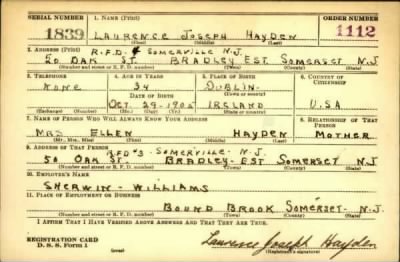 SERIAL NUMBER 1. NAME (Print) ORDER NUMBER
1839 LAURENCE JOSEPH HAYDEN 1112
(First) (Middle) (Last)
2. ADDRESS (Print) R.F.D. SOMERVILLE N.J.
50 OAK ST. BRADLEY EST SOMERSET N.J
(Number and street or R. F. D. number) (Town) (County) (State)
3. TELEPHONE 4. AGE IN YEARS 5. PLACE OF BIRTH 6. COUNTRY OF CITIZENSHIP
NONE 34 DUBLIN-
DATE OF BIRTH (Town or county)
OCT. 29-1905 IRELAND U.S.A
(Exchange) (Number) (Mo.) (Day) (Yr.) (State or country)
7. NAME OF PERSON WHO WILL ALWAYS KNOW YOUR ADDRESS 8. RELATIONSHIP OF THAT PERSON
MRS ELLEN HAYDEN MOTHER
(Mr., Mrs., Miss) (First) (Middle) (Last)
9. ADDRESS OF THAT PERSON RFD #3 - SOMERVILLE - N.J.
50 OAK ST. BRADLEY-EST SOMERSET N.J
(Number and street or R. F. D. number) (Town) (County) (State)
10. EMPLOYER'S NAME
SHERWIN - WILLIAMS
11. PLACE OF EMPLOYMENT OR BUSINESS
BOUND BROOK SOMERSET- N.J.
(Number and street or R. F. D. number) (Town) (County) (State)
I AFFIRM THAT I HAVE VERIFIED ABOVE ANSWERS AND THAT THEY ARE TRUE.
REGISTRATION CARD
D. S. S. Form 1 (over) Laurence Joseph Hayden
(Registrant's signature)